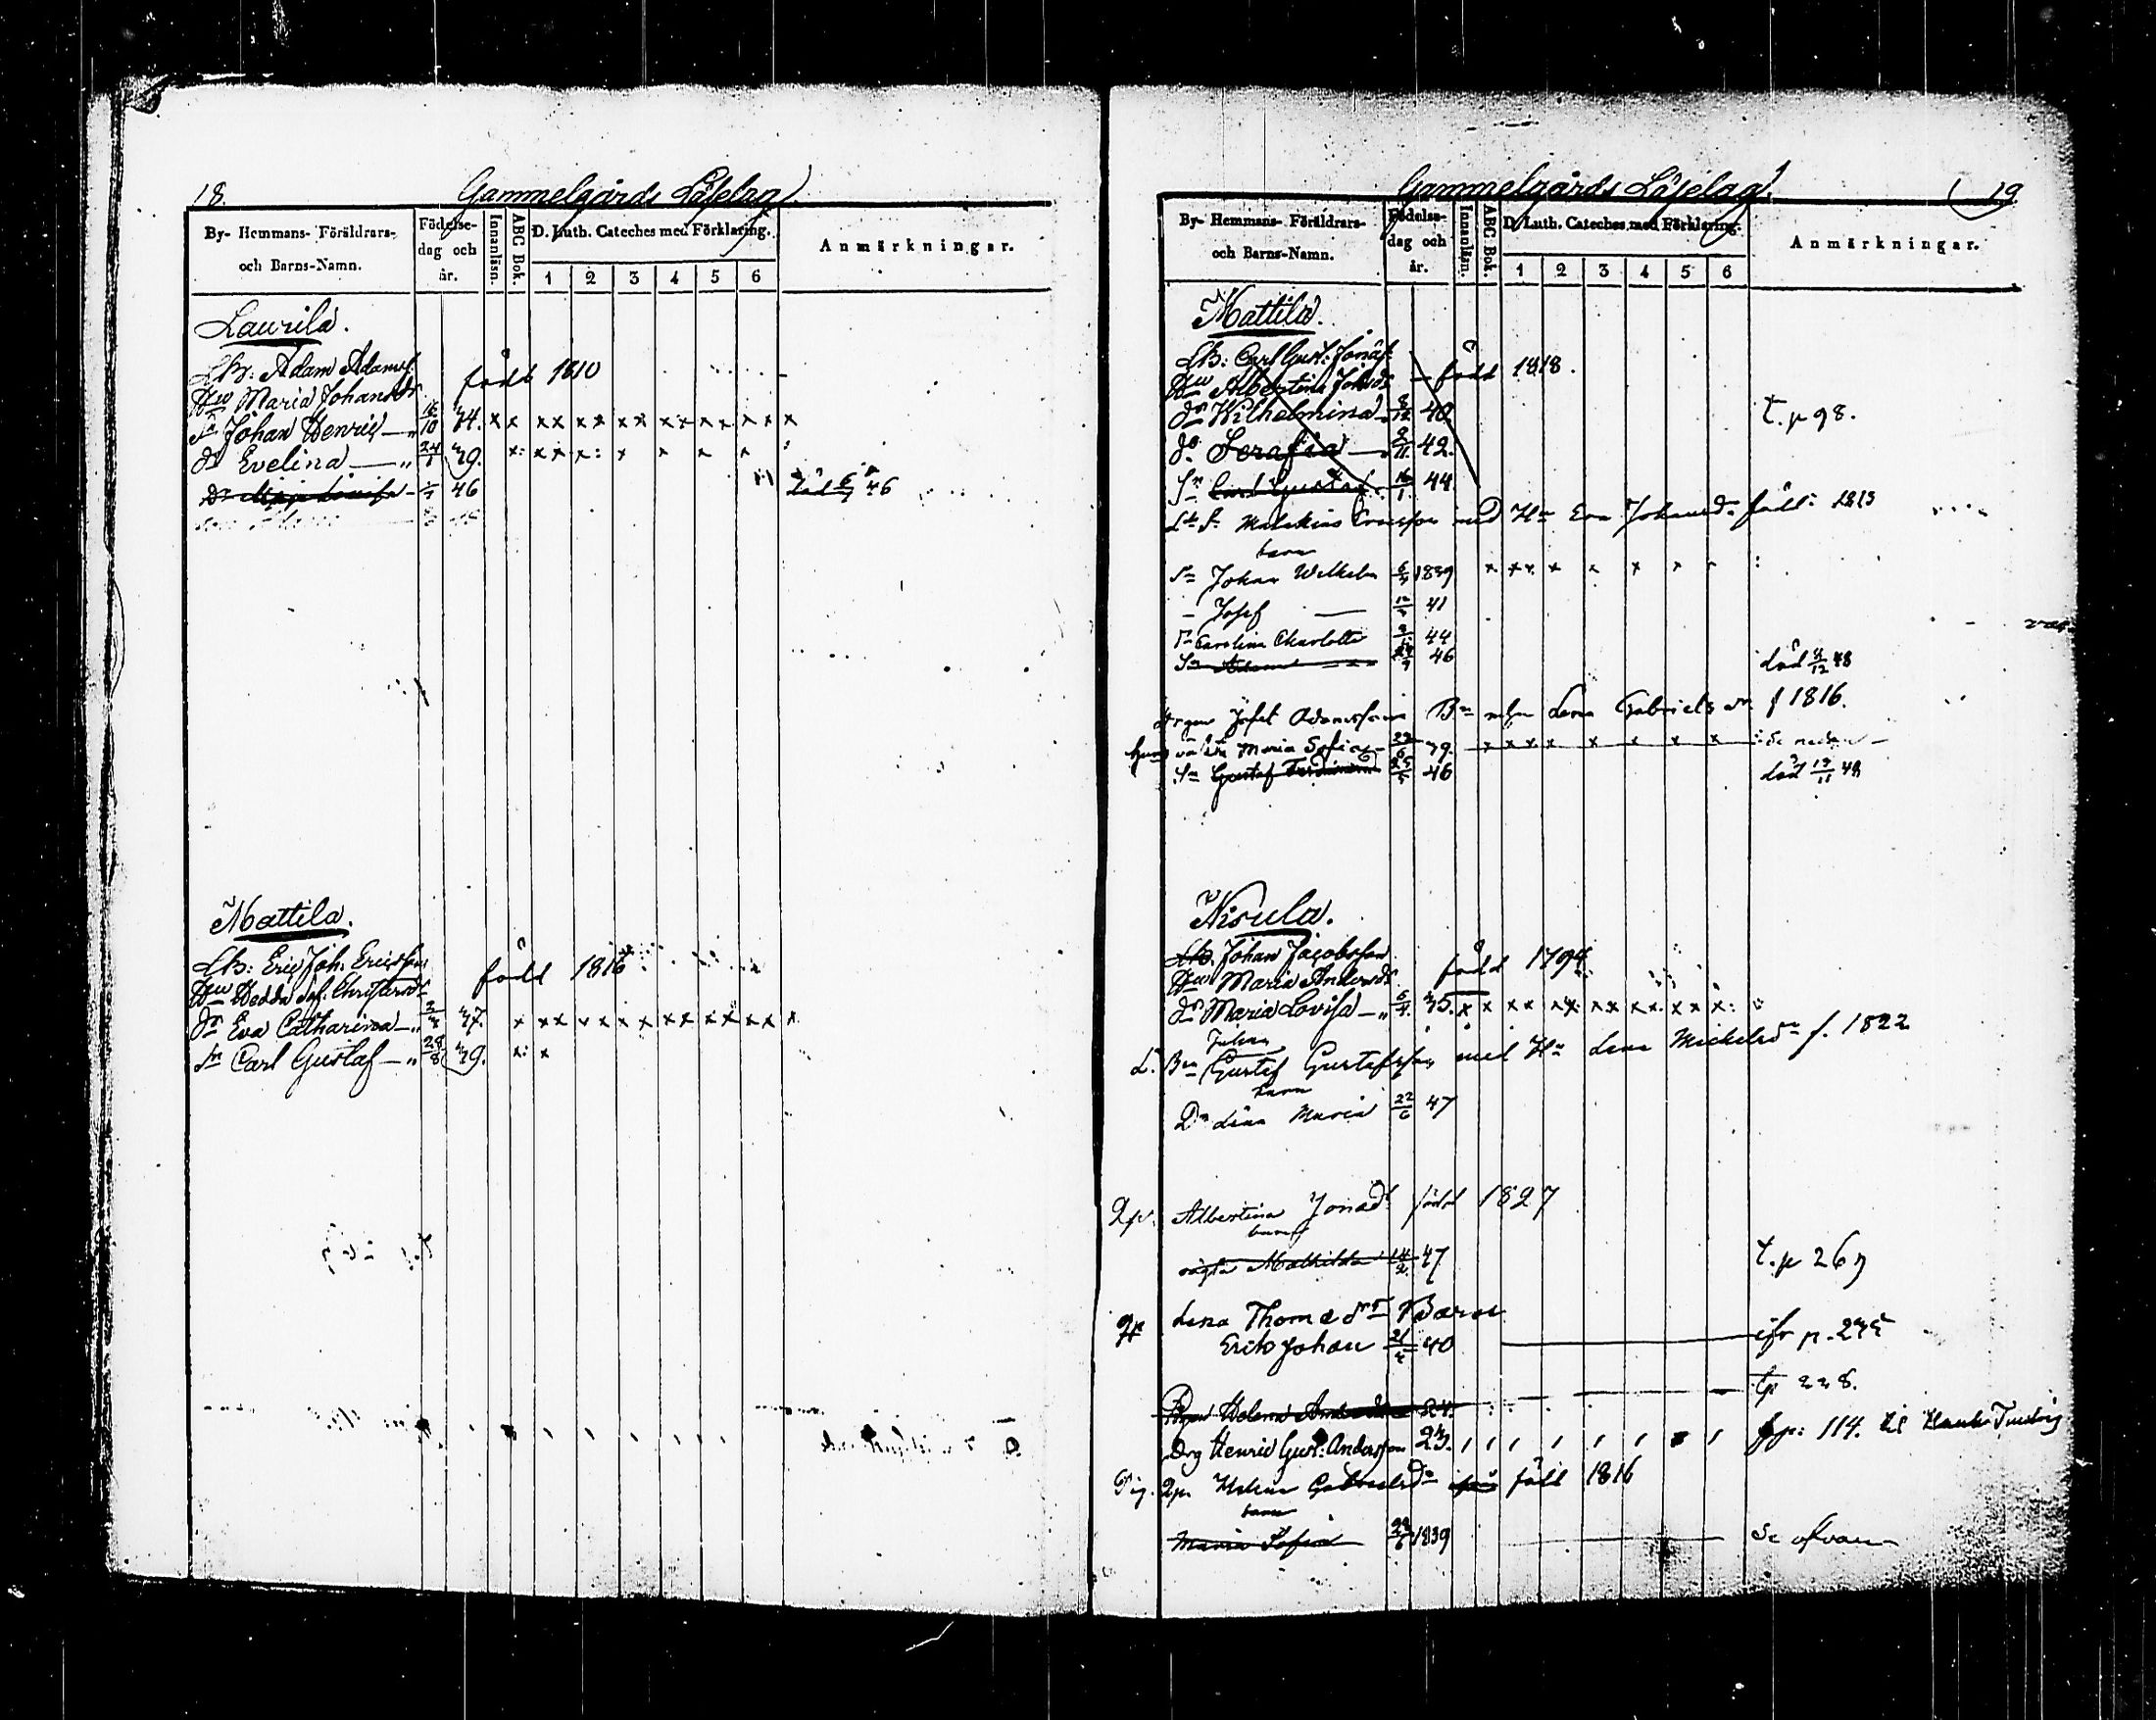 18.
Gammelgårds Läselag
By- Hemmans- Föräldrars- och Barns-Namn.
Födelse-dag och år.
Innanläsn.
ABC Bok.
D. Luth. Cateches med Förklaring.
1 2 3 4 5 6
Anmärkningar.
Laurila.
Lb: Adam Adamss.
Hu Maria Johansdr född 1810
Sn Johan Henric — " 16/10 34. x x xx xx xx xx xx xxx x
dr Evelina — " 24/1 39. x: xx x: x x x x :
Dr Maja Lovisa - 46 död 6/7 46
Mattila.
Lb: Eric Joh. Ericsson
Hu Hedda Sof. Christersdr född 1816
dr Eva Catharina — " 37. x xx xx xx xx xx xx x
Sn Carl Gustaf — " 28/8 39. x: x
Gammelgårds Läselag.
19.
By- Hemmans- Föräldrars- och Barns-Namn.
Födelse-dag och år.
Innanläsn.
ABC Bok.
D. Luth. Cateches med Förklaring.
1 2 3 4 5 6
Anmärkningar.
Mattila.
Lb: Carl Gust: Jonäs.
Hu Albertina Johsdr — född 1818.
dr Wilhelmina 8/12 40. t. p 98.
dr Serafia — 2/11 42.
Sn Carl Gustaf 16/1 44.
med Hu Eva Johansdr född 1813
barn
Sn Johan Wilhelm 1839 x xx x x x x :
- Josef — 41
Dr Carolina Charlotta 44
Sn Adam — 46 död 48
Josef Adamsson Lena Gabrielsdr f 1816.
Maria Sofia — 22/6 39. x xx x x x x x : Se nedan —
Sn Gustaf Ferdinand 25/5 46 död 48
Nisula.
Lb. Johan Jacobsson
Hu Maria Andersdr född 1794
dr Maria Lovisa — " 35. x x xx xx xx xx xx x:
Julin
L. Bn Gustaf Gustafsson med Hu Lena Mickelsdr f. 1822
barn
Dr Lina Maria 22/6 47
Qp. Albertina Jonasdr född 1827
barn
oägta Mathilda 14/2 47 t. p 267
Lena Thomasdr Barn
Erik Johan 21/4 40 ifr p. 235
Pigan Helena Andersdr 24. tp 228.
Drg Henric Gust: Andersson 23. fp: 114.
Pig. Qp. Helena Gabrielsdr född 1816
barn
Maria Sofia 22/6 1839 Se ofvan